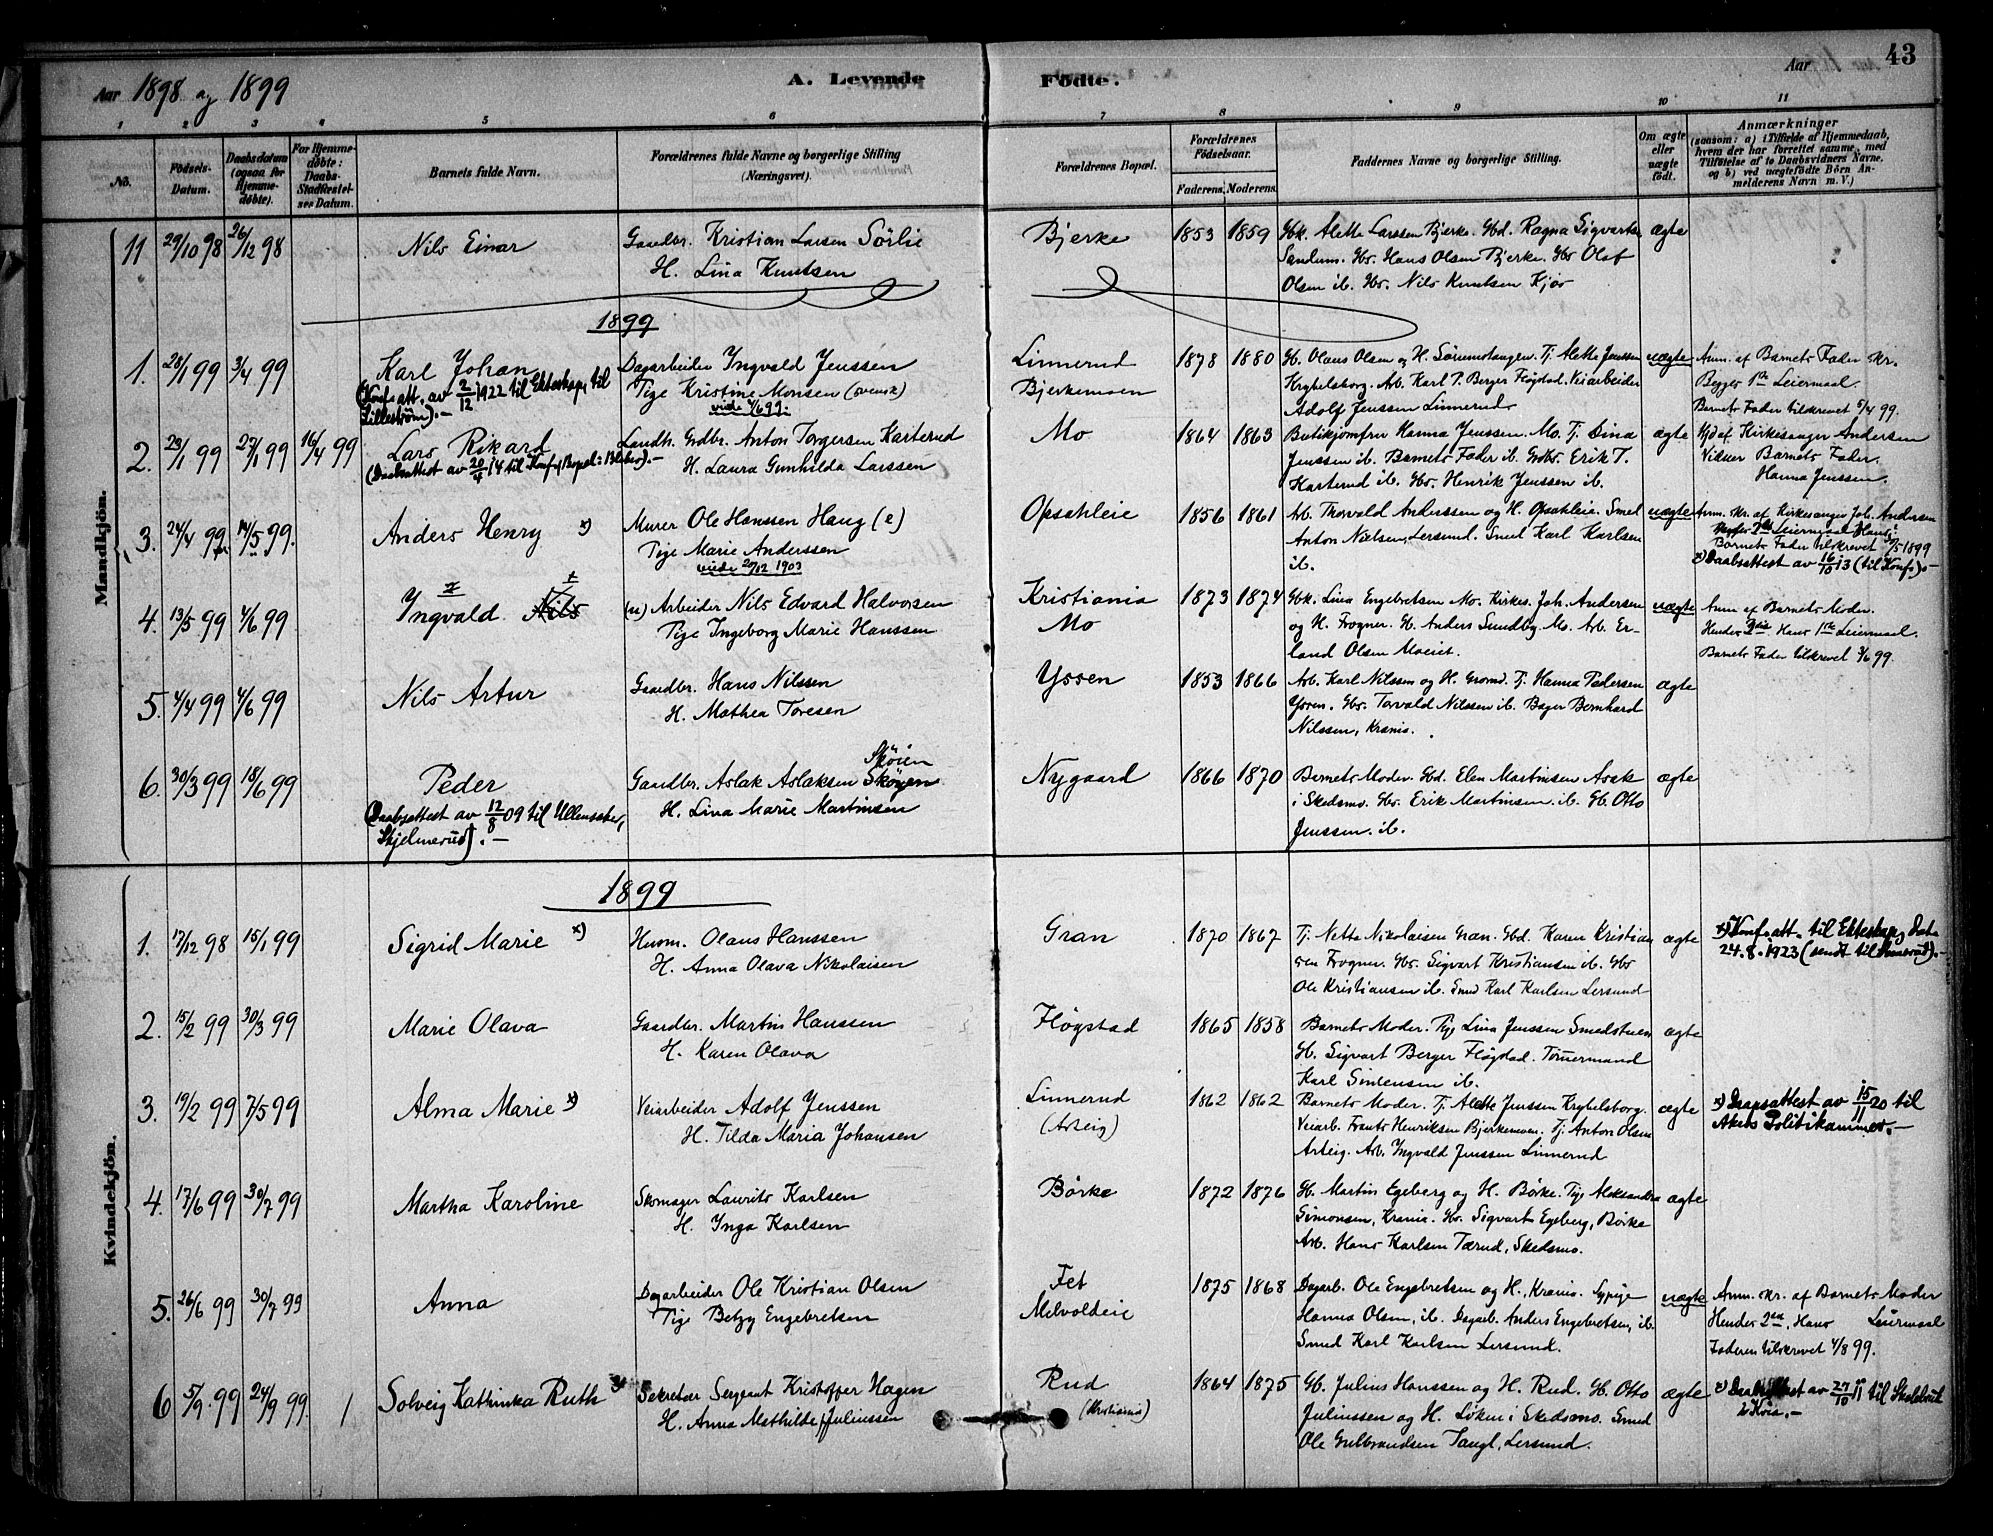 43
Aar 1898 og 1899
A. Levende
Födte.
Aar
1 2 3 4 5 6 7 8 9 10 11
No.
Födsels-
Datum.
Daabsdatum
(ogsaa for
Hjemme-
döbte).
For Hjemme-
döbte:
Daabs-
Stadfæstel-
ses Datum.
Barnets fulde Navn.
Forældrenes fulde Navne og borgerlige Stilling
(Næringsvei).
Forældrenes Bopæl.
Forældrenes
Födselsaar.
Faderens. Moderens.
Faddernes Navne og borgerlige Stilling.
Om ægte
eller
uægte
födt.
Anmærkninger
(saasom: a) i Tilfælde af Hjemmedaab,
hvem der har forrettet samme, med
Tilföielse af to Daabsvidners Navne,
og b) ved uægtefödte Börn An-
melderens Navn m. V.)
Mandkjön.
11 29/10 98 26/12 98 Nils Einar
Gaardbr. Kristian Larsen Sörlie
H. Lina Knutsen
Bjerke 1853 1859
Gbk. Alette Larssen Bjerke. Gbd. Ragna Sigvarts.
Sandum. Gbr. Hans Olsen Bjerke. Gbr Olaf
Olsen ib. Gbr. Nils Knutsen Kjos
ægte
1899
1. 28/1 99 3/4 99 Karl Johan
(Konf. att. av 2/12 1922 til Ekteskap til
Lillestrøm).-
Dagarbeider Ingvald Jenssen
Pige Kristine Monsen (svensk)
viede 4/6 99.
Linnerud
Bjerkemoen
1878 1880
Gb. Olaus Olsen og H. Sörumstangen. Tj. Alette Jenssen
Krybelsborg. Arb. Karl P. Berger Fløgstad. Veiarbeider
Adolf Jenssen Linnerud.
uægte
Anm. af Barnets Fader Kr.
Begges 1ste Leiermaal.
Barnets Fader tilskrevet 5/4 99.
2. 23/1 99 27/1 99 16/4 99 Lars Rikard
(Daabsattest av 20/4 14 til Konf.
Landh. Grdbr. Anton Torgersen Karterud
H. Laura Gunhilda Larssen
Mo 1864 1863
Butikjomfru Hanna Jenssen. Mo. Tj. Dina
Jenssen ib. Barnets Fader ib. Grdbr. Erik T.
Karterud ib. Gbr. Henrik Jenssen ib.
ægte
Hjd af Kirkesanger Andersen
Vidner Barnets Fader.
Hanna Jenssen.
3. 24/4 99 14/5 99. Anders Henry x)
Murer Ole Hanssen Haug (e)
Pige Marie Anderssen
viede 20/12 1903
Opsahleie 1856 1861
Arb. Thorvald Anderssen og H. Opsahleie. Smed
Anton Nielsen, Lersund. Smed Karl Karlsen
ib.
uægte
Anm. Kr. af Kirkesanger Joh. Andersen
Leiermaal Haug:
Barnets Fader tilskrevet 15/5 1899
x) Daabsattest av 16/10 13 (til Konf.).-
4. 13/5 99 4/6 99 Ingvald Nils
(u) Arbeider Nils Edvard Halvorsen
Pige Ingeborg Marie Hanssen
Kristiania
Mo
1873 1874
Gbk. Lina Engebretsen Mo. Kirkes. Joh. Andersen
og H. Frogner. Gb. Anders Sundby. Mo. Arb. Er-
land Olsen Moeiet.
uægte
Anm. af Barnets Moder.
Hendes 2det Hans 1ste Leiermaal.
Barnets Fader tilskrevet 3/6 99.
5. 4/4 99 4/6 99 Nils Artur
Gaardbr. Hans Nilssen
H. Mathea Toresen
Yssen 1853 1866
Arb. Karl Nilssen og H. Tj. Hanna Pedersen
Yssen. Gbr. Torvald Nilssen ib. Bager Bernhard
Nilssen, Krania.
ægte
6. 30/3 99 18/6 99 Peder
(Daabsattest av 12/8 09 til Ullensaker,
Skjelmerud).-
Skøien
Gaardbr. Aslak Aslaksen Skøyen
H. Lina Marie Martinsen
Nygaard 1866 1870
Barnets Moder. Gbd. Elen Martinsen Asak
i Skedsmo. Gbr. Erik Martinsen ib. Gb. Otto
Jenssen ib.
ægte
1899
Kvindekjön.
1. 17/12 98 15/1 99 Sigrid Marie x)
Husm. Olaus Hanssen
H. Anna Olava Nikolaisen
Gran 1870 1867
Tj. Nette Nikolaisen Gran. Gbd. Karen Kristian
sen Frogner. Gbr. Sigvart Kristiansen ib. Gbr
Ole Kristiansen ib. Smed Karl Karlsen Lersund
ægte
x) Konf. att. til Ekteskap dat.
24.8.1923 (sendt til Linnerud).-
2. 15/2 99 30/3 99 Marie Olava
Gaardbr. Martin Hanssen
H. Karen Olava
Fløgstad 1865 1858
Barnets Moder. Pige Lina Jenssen Smedstuen
Gb. Sigvart Berger Fløgstad. Tömermand
Karl Simensen ib.
ægte
3. 19/2 99 7/5 99 Alma Marie x)
Veiarbeider Adolf Jenssen
H. Tilda Maria Johansen
Linnerud
(Arteig)
1862 1862
Barnets Moder. Tj. Alette Jenssen Krybelsborg.
Veiarb. Frants Henriksen Bjerkemoen. Tj. Anton Olsen
Arteig. Arb. Ingvald Jenssen Linnerud
ægte
x) Daapsattest av 15/11 20 til
Akers Politikammer.-
4. 17/6 99 30/7 99 Martha Karoline
Skomager Laurits Karlsen
H. Inga Karlsen
Börke 1872 1876
Gb. Martin Egeberg og H. Börke. Pige Aleksandra
Simonsen, Krania. Gbr. Sigvart Egeberg, Börke
Arb. Hans Karlsen Tærud, Skedsmo.
ægte
5. 26/6 99 30/7 99 Anna
Dagarbeider Ole Kristian Olsen
Pige Betzy Engebretsen
Fet
Melvoldeie
1875 1868
Dagarb. Ole Engebretsen og H. Krania. Sypige
Hanna Olsen, ib. Dagarb. Anders Engebretsen, ib.
Smed Karl Karlsen Lersund.
uægte
Anm. Kr. af Barnets Moder
Hendes 2det, Hans Leiermaal
Faderen tilskrevet 4/8 99.
6 5/9. 99 24/9 99. / Solveig Kathinka Ruth x)
Sekretær Sergeant Kristoffer Hagen
H. Anna Mathilde Juliussen
Rud
(Kristiania)
1864 1875
Gb. Julius Hanssen og H. Rud. Gb. Otto
Juliussen og H. Løken i Skedsmo. Smed
Ole Gulbrandsen Tangl, Lersund.
ægte
x) Daabsattest av 27/10 11 til Skolebrug
i Kria.-